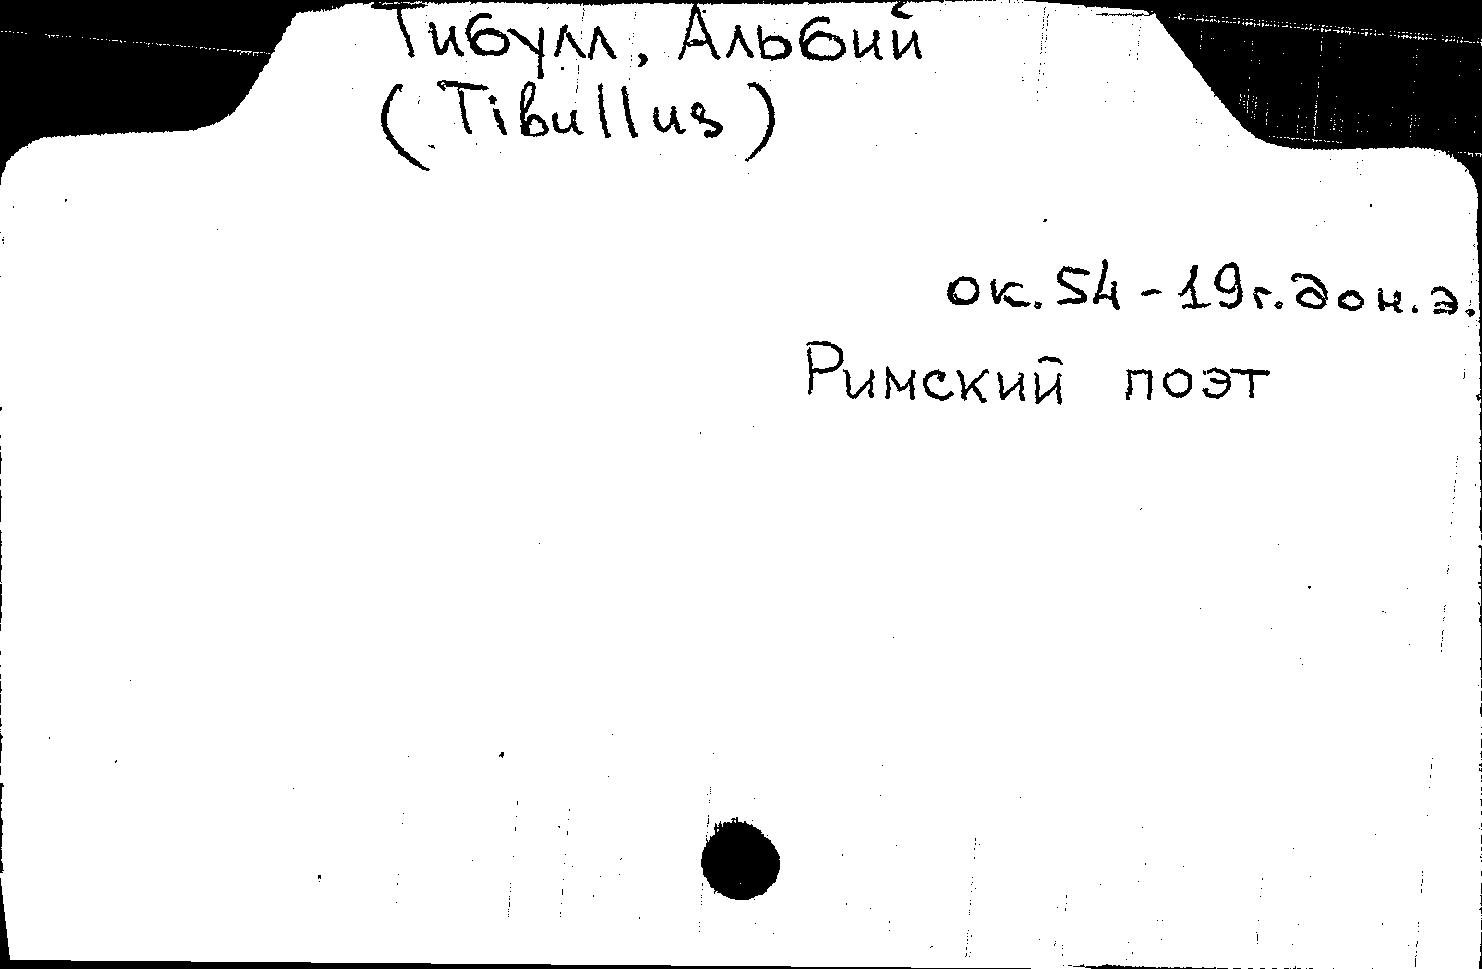 Тибулл, Альбий
(Tibullus)
ок. 54 - 19 г. до н. э.
Римский поэт